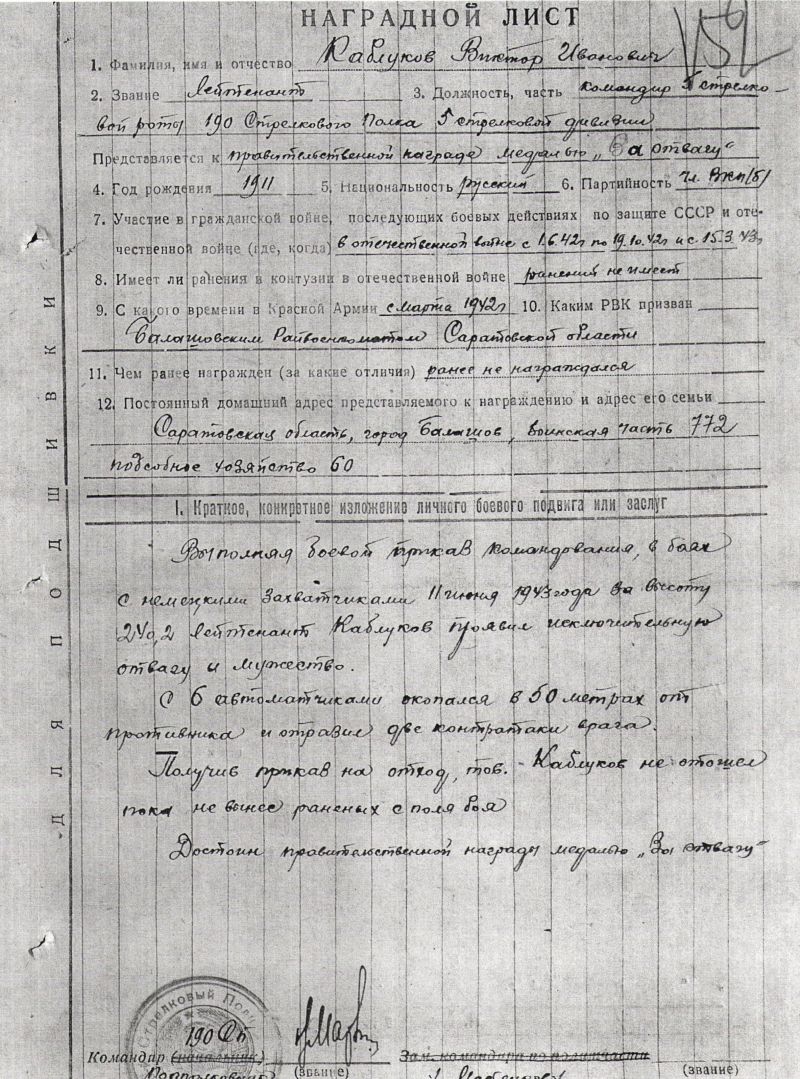 НАГРАДНОЙ ЛИСТ
1. Фамилия, имя и отчество Каблуков Виктор Иванович
2. Звание лейтенант 3. Должность, часть командир 5 стрелко-
вой роты 190 Стрелкового Полка 5 стрелковой дивизии
Представляется к правительственной награде медалью „За отвагу“
4. Год рождения 1911 5. Национальность русский 6. Партийность чл. ВКП(б)
7. Участие в гражданской войне, последующих боевых действиях по защите СССР и оте-
чественной войне (где, когда) в отечественной войне с 1.6.42г по 19.10.42г и с 15.3.43г
8. Имеет ли ранения и контузии в отечественной войне ранений не имеет
9. С какого времени в Красной Армии с марта 1942г 10. Каким РВК призван
Балашовским Райвоенкоматом Саратовской области
11. Чем ранее награжден (за какие отличия) ранее не награждался
12. Постоянный домашний адрес представляемого к награждению и адрес его семьи
Саратовская область, город Балашов, воинская часть 772
подсобное хозяйство 60
I. Краткое, конкретное изложение личного боевого подвига или заслуг
Выполняя боевой приказ командования, в боях
с немецкими захватчиками 11 июня 1943 года за высоту
240,2 лейтенант Каблуков проявил исключительную
отвагу и мужество.
С 6 автоматчиками окопался в 50 метрах от
противника и отразил две контратаки врага.
Получив приказ на отход, тов. Каблуков не отошел
пока не вынес раненых с поля боя
Достоин правительственной награды медалью „За отвагу“
ДЛЯ ПОДШИВКИ
Стрелковый Полк
190 СП
Командир (начальник) Зам. командира по политчасти
Подполковник (звание) (звание)